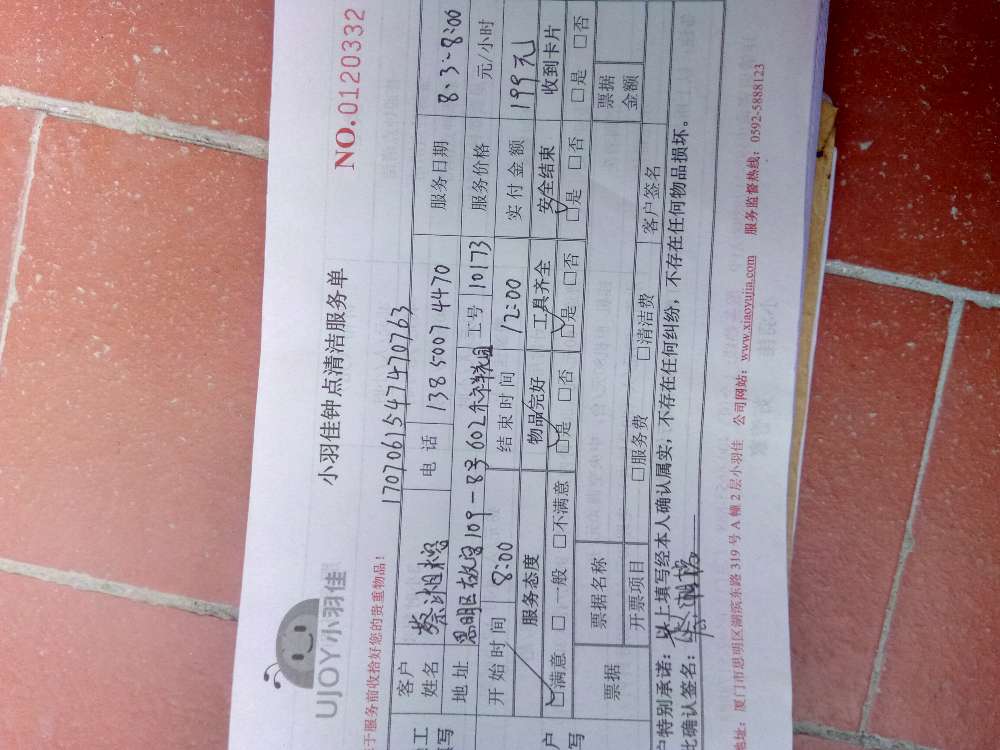 UJOY小羽佳
小羽佳钟点清洁服务单
NO.0120332
于服务前收拾好您的贵重物品!
1707061547470763
客户姓名 蔡湘榕 电话 138 5007 4470 服务日期 8、3、-8:00
地址 思明区故宫109-8号602 工号 10173 服务价格 元/小时
开始时间 8:00 结束时间 12:00 实付金额 199元
服务态度 物品完好 工具齐全 安全结束 收到卡片
☑满意 □一般 □不满意 ☑是 □否 ☑是 □否 ☑是 □否 □是 □否
票据 票据名称 票据金额
开票项目 □服务费 □清洁费 客户签名
户特别承诺:以上填写经本人确认属实,不存在任何纠纷,不存在任何物品损坏。
此确认签名:蔡湘榕
地址:厦门市思明区湖滨东路319号A幢2层小羽佳 公司网站:www.xiaoyujia.com 服务监督热线:0592-5888123